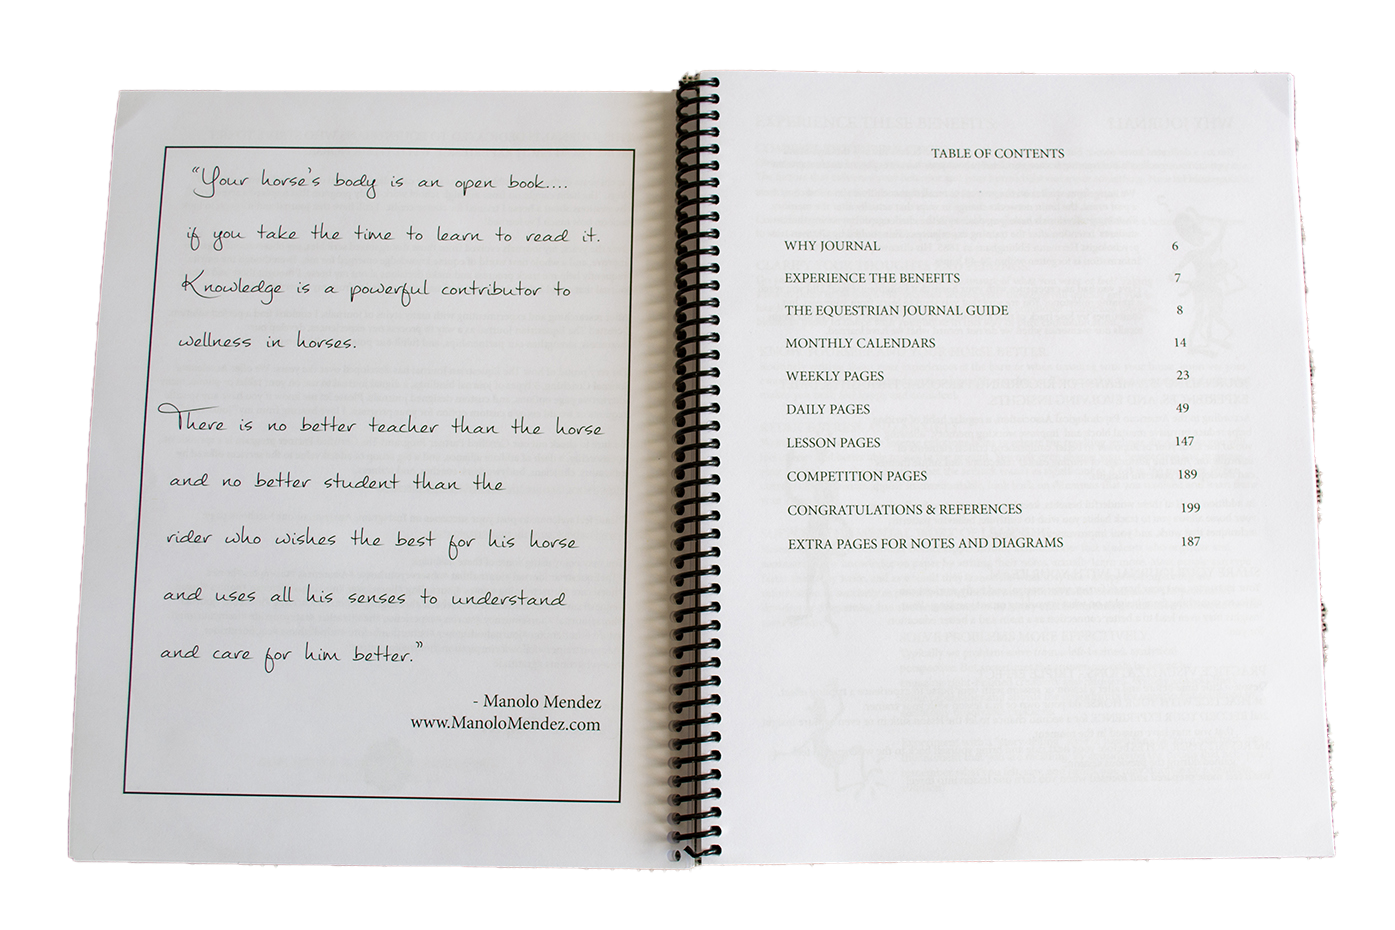 “Your horse’s body is an open book....
if you take the time to learn to read it.
Knowledge is a powerful contributor to
wellness in horses.
There is no better teacher than the horse
and no better student than the
rider who wishes the best for his horse
and uses all his senses to understand
and care for him better.”
- Manolo Mendez
www.ManoloMendez.com
TABLE OF CONTENTS
WHY JOURNAL 6
EXPERIENCE THE BENEFITS 7
THE EQUESTRIAN JOURNAL GUIDE 8
MONTHLY CALENDARS 14
WEEKLY PAGES 23
DAILY PAGES 49
LESSON PAGES 147
COMPETITION PAGES 189
CONGRATULATIONS & REFERENCES 199
EXTRA PAGES FOR NOTES AND DIAGRAMS 187